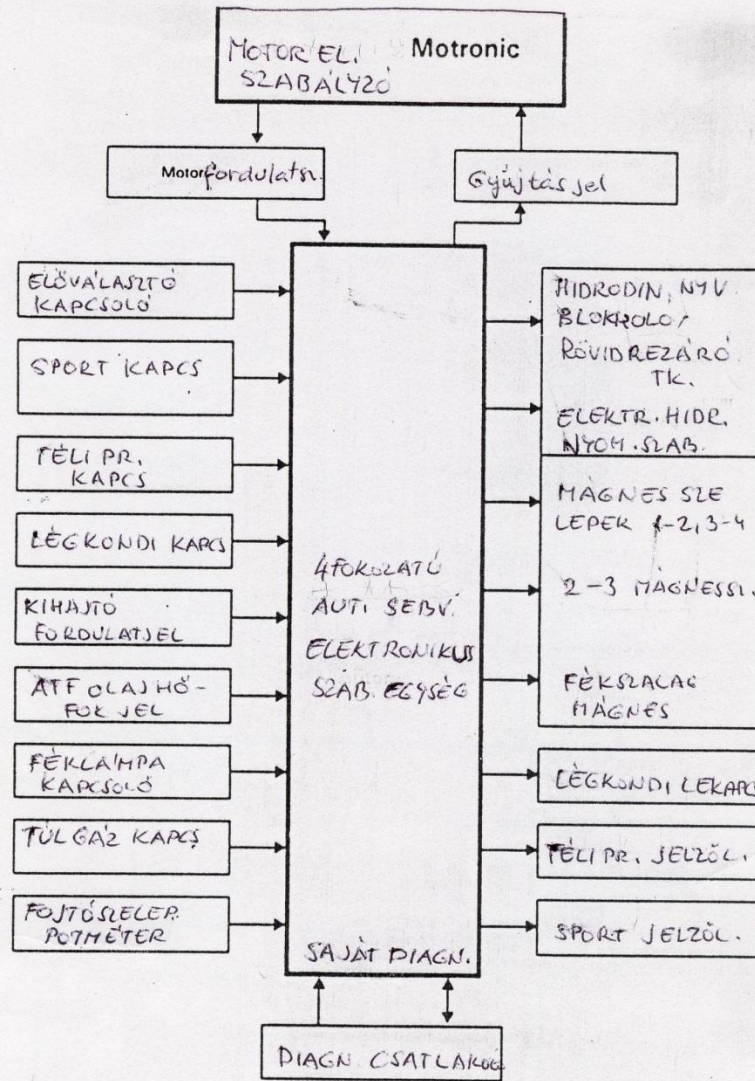 MOTOR EL. Motronic
SZABÁLYZÓ
Motorfordulatsz.
Gyújtás jel
ELŐVÁLASZTÓ
KAPCSOLÓ
SPORT KAPCS
TÉLI PR.
KAPCS
LÉGKONDI KAPCS
KIHAJTÓ
FORDULATJEL
ATF OLAJ HŐ-
FOK JEL
FÉKLÁMPA
KAPCSOLÓ
TÚLGÁZ KAPCS
FOJTÓSZELEP.
POTMÉTER
4 FOKOZATÚ
AUT. SEBV.
ELEKTRONIKUS
SZAB. EGYSÉG
SAJÁT DIAGN.
HIDRODIN. NYV.
BLOKKOLÓ/
RÖVIDREZÁRÓ
TK.
ELEKTR. HIDR.
NYOM. SZAB.
MÁGNES SZE
LEPEK 1-2, 3-4
2-3 MÁGNESSZ.
FÉKSZALAG
MÁGNES
LÉGKONDI LEKAPCS
TÉLI PR. JELZŐL.
SPORT JELZŐL.
DIAGN. CSATLAKOZÓ